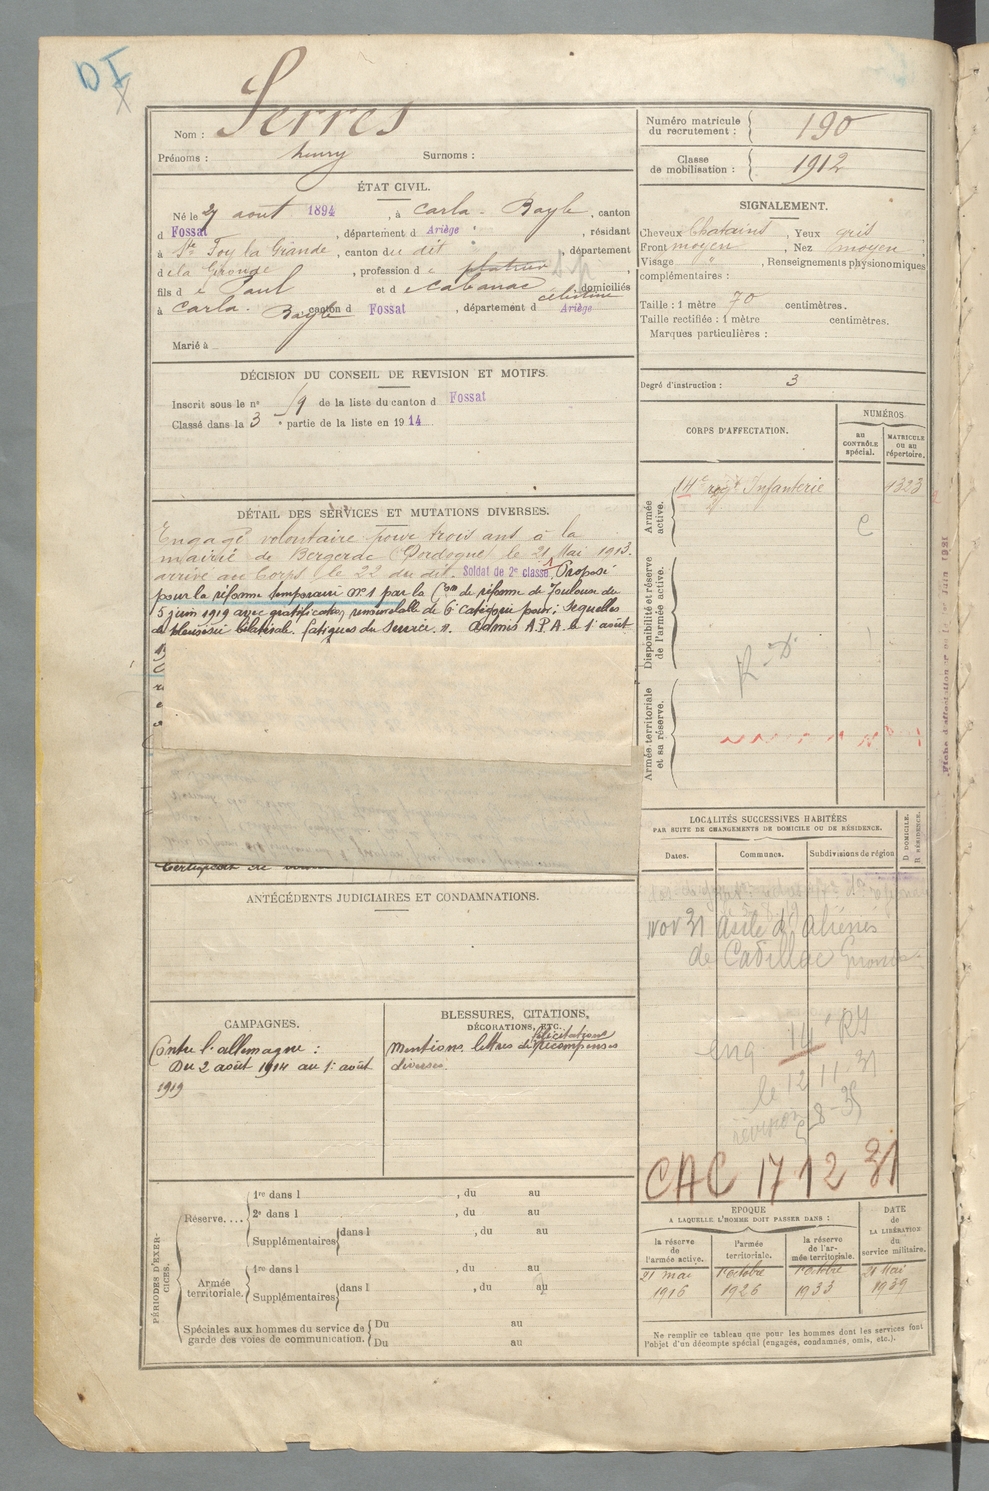 DI
X
Nom : Serres
Prénoms : henry Surnoms :
Numéro matricule du recrutement : 190
Classe de mobilisation : 1912
ÉTAT CIVIL.
Né le 27 aout 1894, à Carla-Bayle, canton
d Fossat, département d Ariège, résidant
à Ste Foy la Grande, canton du dit, département
de la Gironde, profession de platrier
fils de Paul et de Cabanac Célestine, domiciliés
à Carla-Bayle canton d Fossat, département d Ariège
Marié à
SIGNALEMENT.
Cheveux Chatains, Yeux gris
Front moyen, Nez moyen
Visage , Renseignements physionomiques
complémentaires :
Taille : 1 mètre 70 centimètres.
Taille rectifiée : 1 mètre centimètres.
Marques particulières :
Degré d'instruction : 3
DÉCISION DU CONSEIL DE REVISION ET MOTIFS.
Inscrit sous le n° 19 de la liste du canton d Fossat
Classé dans la 3e partie de la liste en 1914
DÉTAIL DES SERVICES ET MUTATIONS DIVERSES.
Engagé volontaire pour trois ans à la
mairie de Bergerac (Dordogne) le 21 Mai 1913.
arrivé au Corps le 22 du dit. Soldat de 2e classe. Proposé
pour la réforme temporaire n°1 par la Con de réforme de Toulouse du
5 juin 1919 avec gratification renouvelable de 6e catégorie pour : sequelles
de pleurésie bilatérale. fatigues du service. Admis A.P.A. le 1er août
Certificat de
CORPS D'AFFECTATION.
NUMÉROS
au CONTRÔLE spécial.
MATRICULE ou au répertoire.
Armée active.
14e regt Infanterie 1323
Disponibilité et réserve de l'armée active.
R. D.
Armée territoriale et sa réserve.
LOCALITÉS SUCCESSIVES HABITÉES
PAR SUITE DE CHANGEMENTS DE DOMICILE OU DE RÉSIDENCE.
Dates. Communes. Subdivisions de région
D DOMICILE. R RÉSIDENCE.
Nov 31 asile d'aliénés
de Cadillac Gironde
enq 14e RI
le 12 11 31
CAC 17 12 31
ANTÉCÉDENTS JUDICIAIRES ET CONDAMNATIONS.
CAMPAGNES.
Contre l'allemagne :
Du 2 août 1914 au 1er août
1919
BLESSURES, CITATIONS,
DÉCORATIONS, ETC.
Mentions lettres de félicitations récompenses
diverses.
PÉRIODES D'EXERCICES.
Réserve....
1re dans l , du au
2e dans l , du au
Supplémentaires dans l , du au
Armée territoriale.
1re dans l , du au
Supplémentaires dans l , du au
Spéciales aux hommes du service de Du au
garde des voies de communication. Du au
EPOQUE
A LAQUELLE L'HOMME DOIT PASSER DANS :
DATE de LA LIBÉRATION du service militaire.
la réserve de l'armée active.
l'armée territoriale.
la réserve de l'armée territoriale.
21 mai 1916
1er octobre 1926
1er octobre 1933
21 Mai 1939
Ne remplir ce tableau que pour les hommes dont les services font
l'objet d'un décompte spécial (engagés, condamnés, omis, etc.).